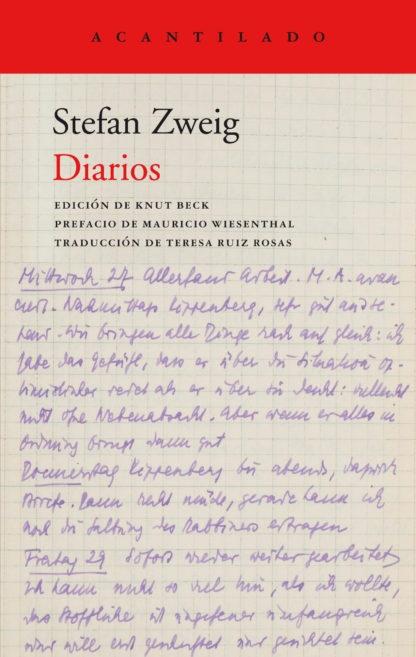 ACANTILADO
Stefan Zweig
Diarios
EDICIÓN DE KNUT BECK
PREFACIO DE MAURICIO WIESENTHAL
TRADUCCIÓN DE TERESA RUIZ ROSAS
Mittwoch 27 Allerhand Arbeit. M. A. avan
ciert. Nachmittags Kippenberg, sehr gut
Wir bringen alle Dinge rasch auf gleich: ich
habe das Gefühl, dass er über die Situation op-
timistischer redet als er über sie denkt: vielleicht
nicht ohne Nebenabsicht. Aber wenn er alles in
Ordnung bringt dann gut
Donnerstag Kippenberg bis abends, dazwisch
Arbeit. Dann recht müde, gerade kann ich
noch die des Rabbiners ertragen
Freitag 29 Sofort wieder weiter gearbeitet
Ich kann nicht so viel tun, als ich wollte,
das Stoffliche ist ungeheuer umfangreich
und will erst gesichtet sein.